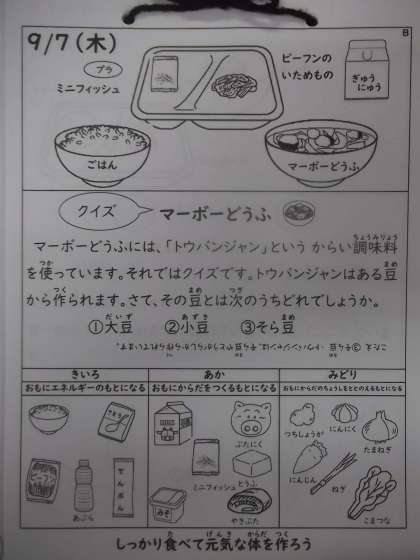 8
9/7(木)
プラ
ミニフィッシュ
ビーフンの
いためもの
ぎゅう
にゅう
ごはん
マーボーどうふ
クイズ
マーボーどうふ
マーボーどうふには、「トウバンジャン」という からい調味料
を使っています。それではクイズです。トウバンジャンはある豆
から作られます。さて、その豆とは次のうちどれでしょうか。
①大豆 ②小豆 ③そら豆
きいろ
おもにエネルギーのもとになる
あか
おもにからだをつくるもとになる
みどり
おもにからだのちょうしをととのえるもとになる
ビーフン
あぶら
でんぷん
みそ
ミニフィッシュ
ぶたにく
とうふ
やきぶた
つちしょうが
にんにく
たまねぎ
にんじん
ねぎ
こまつな
しっかり食べて元気な体を作ろう